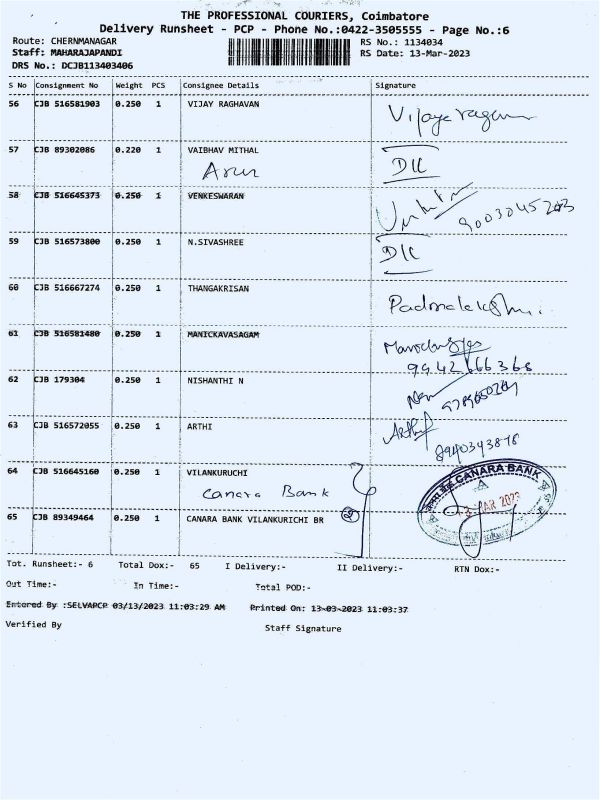 THE PROFESSIONAL COURIERS, Coimbatore
Delivery Runsheet - PCP - Phone No.:0422-3505555 - Page No.:6
Route: CHERNMANAGAR RS No.: 1134034
Staff: MAHARAJAPANDI RS Date: 13-Mar-2023
DRS No.: DCJB113403406
S No Consignment No Weight PCS Consignee Details Signature
56 CJB 516581903 0.250 1 VIJAY RAGHAVAN
57 CJB 89302086 0.220 1 VAIBHAV MITHAL
Arun
58 CJB 516645373 0.250 1 VENKESWARAN
59 CJB 516573800 0.250 1 N.SIVASHREE
60 CJB 516667274 0.250 1 THANGAKRISAN
61 CJB 516581480 0.250 1 MANICKAVASAGAM
9942666368
62 CJB 179304 0.250 1 NISHANTHI N
63 CJB 516572055 0.250 1 ARTHI Arthi
8940343876
64 CJB 516645160 0.250 1 VILANKURUCHI
Canara Bank
CANARA BANK
MAR 2023
65 CJB 89349464 0.250 1 CANARA BANK VILANKURICHI BR
Tot. Runsheet:- 6 Total Dox:- 65 I Delivery:- II Delivery:- RTN Dox:-
Out Time:- In Time:- Total POD:-
Entered By :SELVAPCP 03/13/2023 11:03:29 AM Printed On: 13-03-2023 11:03:37
Verified By Staff Signature